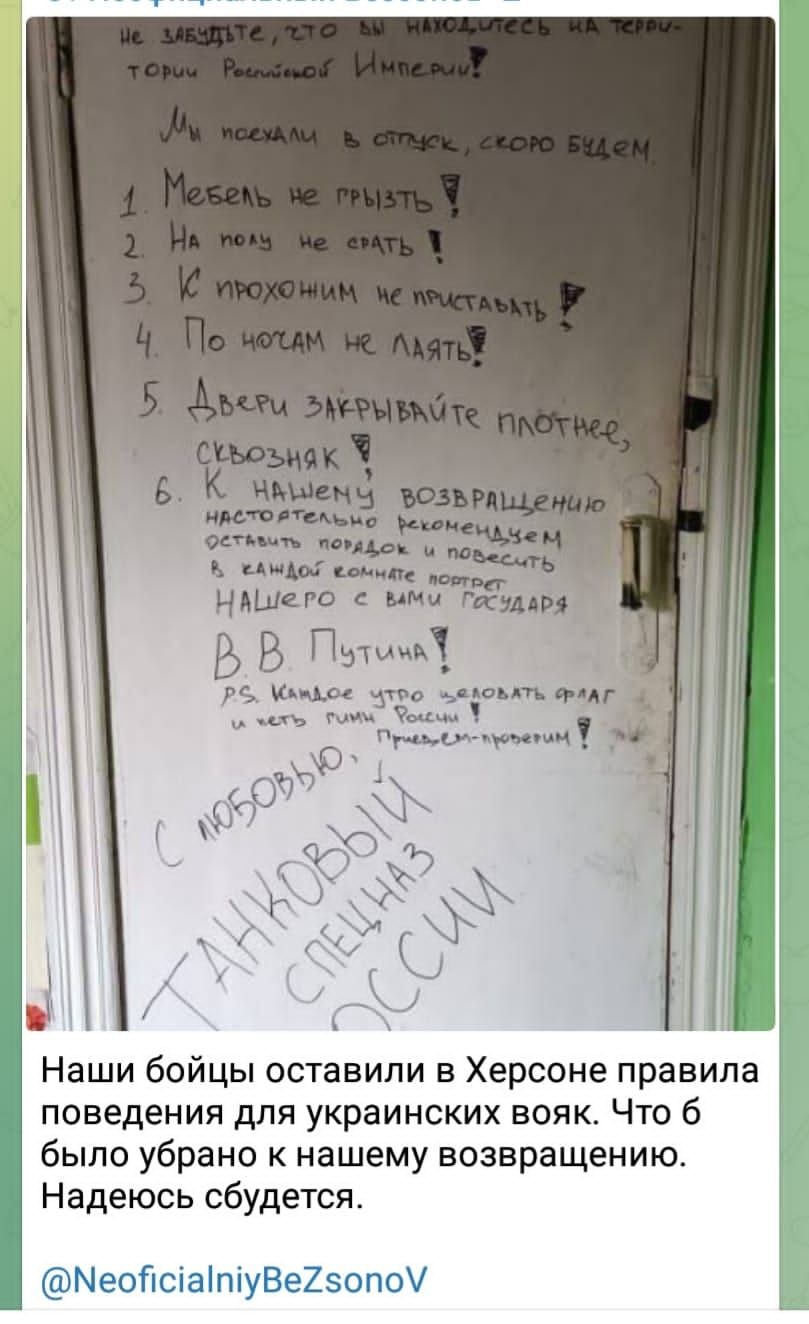 Не ЗАБУДЬТЕ, ЧТО ВЫ НАХОДИТЕСЬ НА ТЕРРИ-
ТОРИИ Российской Империи!
Мы поехали в отпуск, скоро будем
1. Мебель не грызть!
2. На полу не срать!
3. К прохожим не приставать!
4. По ночам не лаять!
5. Двери закрывайте плотнее,
сквозняк!
6. К нашему возвращению
настоятельно рекомендуем
оставить порядок и повесить
в каждой комнате портрет
нашего с вами Государя
В.В. Путина!
P.S. Каждое утро целовать флаг
и петь гимн России!
Приедем-проверим!
С любовью,
ТАНКОВЫЙ
СПЕЦНАЗ
ОССИИ
Наши бойцы оставили в Херсоне правила
поведения для украинских вояк. Что б
было убрано к нашему возвращению.
Надеюсь сбудется.
@NeoficialniyBeZsonoV